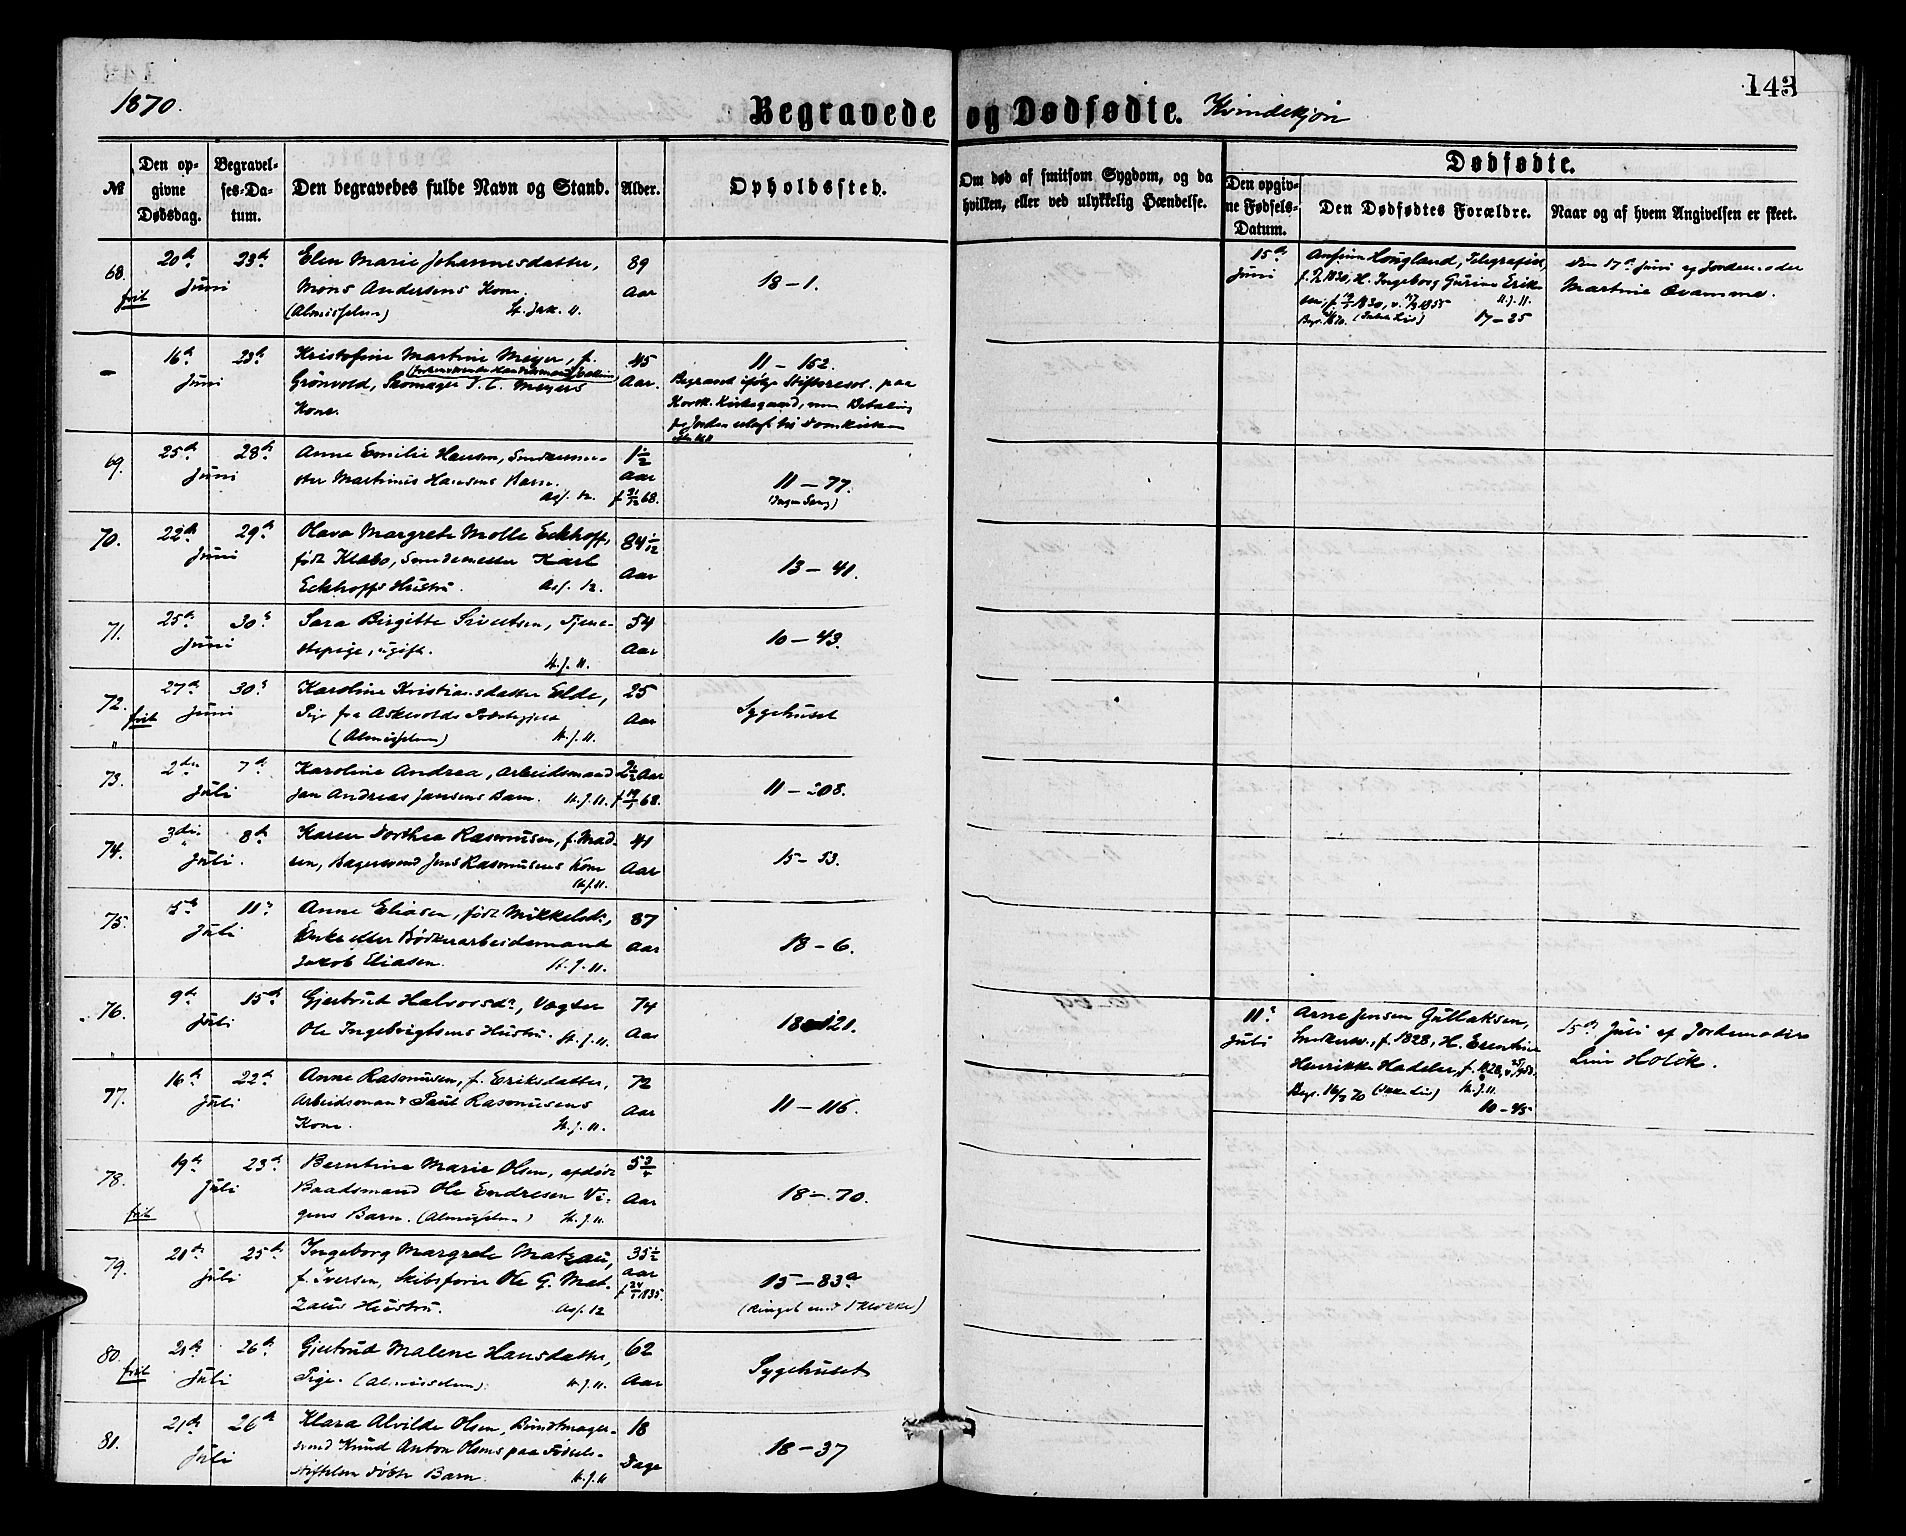 1870.
Begravede og Dødfødte. Kvindekjøn
143
№
Den opgivne Dødsdag.
Begravelses-Datum.
Den begravedes fulde Navn og Stand.
Alder.
Opholdssted.
Om død af smitsom Sygdom, og da hvilken, eller ved ulykkelig Hændelse.
Dødfødte.
Den opgivne Fødsels-Datum.
Den Dødfødtes Forældre.
Naar og af hvem Angivelsen er skeet.
68. frit
20de 23de Juni
Elen Marie Johannesdatter,
Mons Andersens Kone.
(Almisselem)
89 Aar
18 – 1.
15de Juni
Telegrafist,
H. Ingeborg Gurine Erik-
sen,
17 – 25
den 17de Juni af Jordemoder
Martine
–
16de 23de Juni
Kristofine Martine Meyer, f.
Grönvold, Skomager J. C. Meyers
Kone.
45 Aar.
11 – 152.
Begravet ifølge Stiftsresol. paa
Korsk. Kirkegaard, men Betaling
for Jorden erlagt til Domkirken
69.
25de 28de Juni
Anne Emilie Hansen, Snedkerme-
ster Martinus Hansens Barn.
Ass. K.
1½ Aar
11 – 77.
(Ingen Sang)
70.
22de 29de Juni
Olava Margrete Molle Eckhoff,
født Klabo, Smedemester Karl
Eckhoffs Hustru. Ass. K.
84 1/12 Aar
13 – 41.
71.
25de 30te Juni
Sara Birgitte Sivertsen, Tjene-
stepige, ugift.
St. J. K.
54 Aar
10 – 43.
72. frit
27de 30te Juni
Karoline Kristiansdatter Elde,
Pige fra Askevolds Præstegjeld
(Almisselem) St. J. K.
25 Aar
Sygehuset
73.
2den 7de Juli
Karoline Andrea, Arbeidsmand
Jan Andreas Jansens Barn. St. J. K.
2½ Aar
11 – 208.
74.
3die 8de Juli.
Karen Dorthea Rasmussen, f. Mad-
sen, Bagersvend Jens Rasmussens Kone
St. J. K.
41 Aar
15 – 53.
75.
5te 11te Juli
Anne Eliasen, født Mikkelsdr,
Enke efter Bødkerarbeidsmand
Jakob Eliasen. St. J. K.
87 Aar
18 – 6.
76.
9de 15de Juli
Gjertrud Halvorsdr, Vægter
Ole Ingebrigtsens Hustru. St. J. K.
74 Aar
18 – 121.
11te Juli
Arne Jensen Gullaksen,
Snedkersv., f. 1828, H. Erentine
Henrikke Hadeler,
Begr. 16/7 70 St. J. K.
10 – 45
15de Juli af Jordemoder
Line Holck.
77.
16de 22de Juli
Anne Rasmussen, f. Eriksdatter,
Arbeidsmand Paul Rasmussens
Kone. St. J. K.
72 Aar
11 – 116.
78. frit
19de 23de Juli
Berntine Marie Olsen, afdøde
Baadsmand Ole Endresen Vi-
gens Barn. (Almisselem) St. J. K.
5¾ Aar
18 – 70.
79.
20de 25de Juli
Ingeborg Margrete Matzau,
f. Iversen, Skibsfører Ole G. Mat-
zaus Hustru. Ass. K.
35½ Aar
15 – 83a
(Ringet med 1 Klokke)
80. frit
21de 26de Juli
Gjertrud Malene Hansdatter,
Pige. (Almisselem) St. J. K.
62 Aar
Sygehuset
81.
21de 26de Juli
Klara Alvilde Olsen, Bundtmager-
svend Knud Anton Olsens paa Fødsels-
stiftelsen døbte Barn. St. J. K.
18 Dage
18 – 37